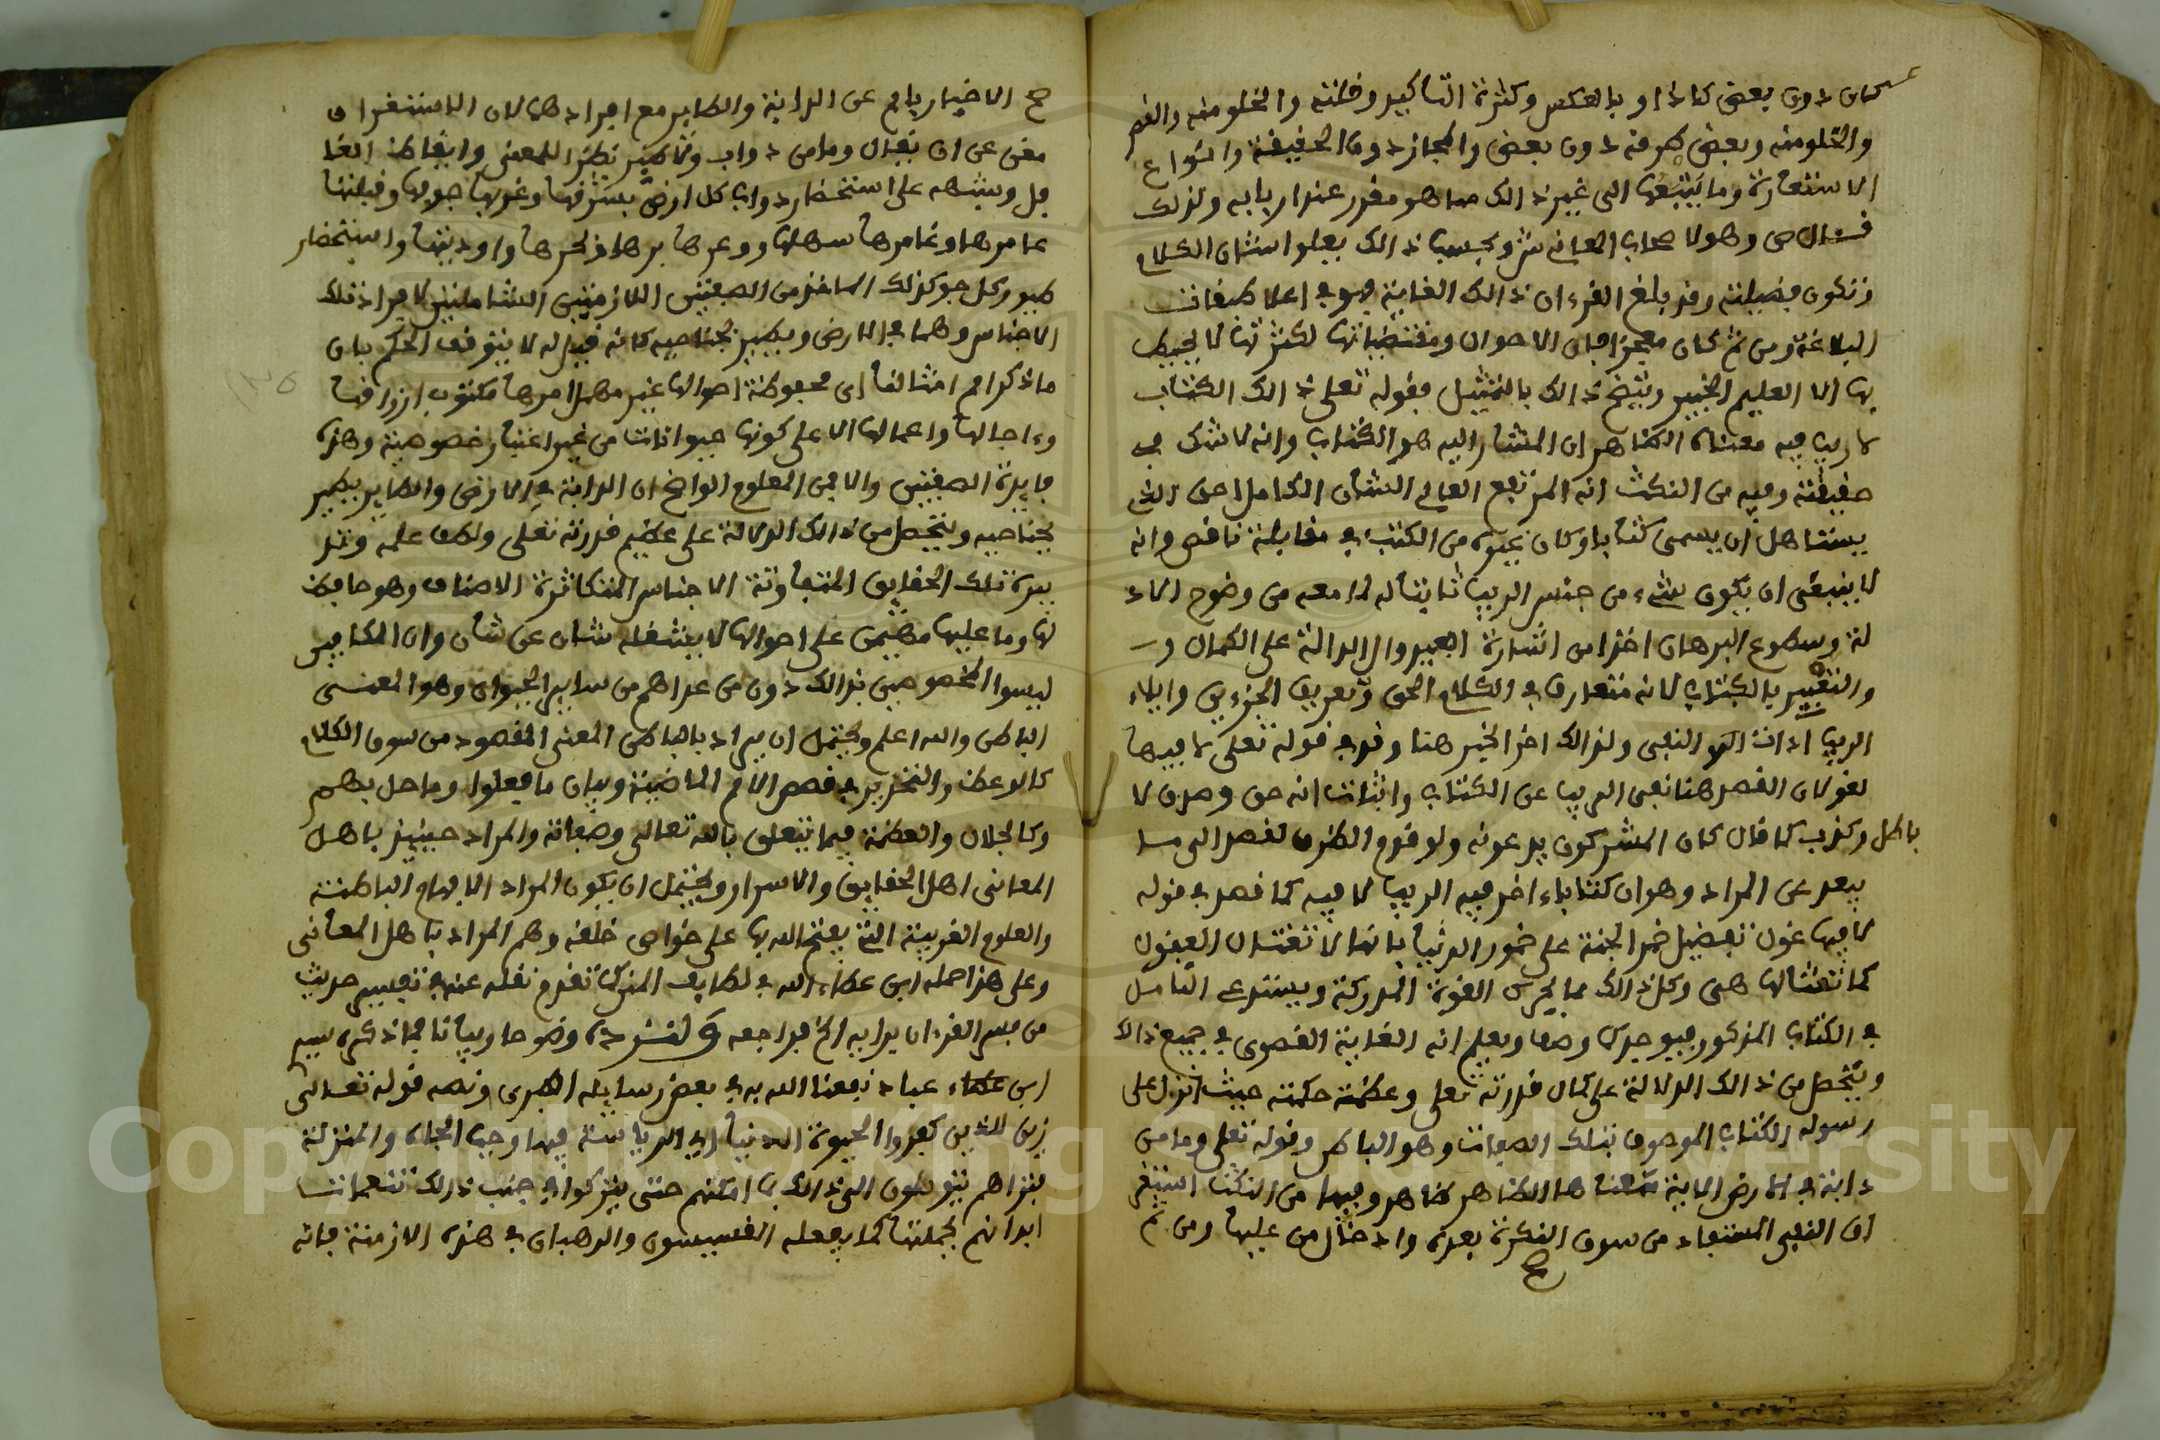 كان دون بعض كاذا او بالعكس وكثرة التأكيد وقلته والخلو منه والقصر
والخلو منه وبعض طرقه دون بعض والمجاز دون الحقيقة وانواع
الاستعارة وما يتبعها الى غير ذالك مما هو مقرر عند اربابه ولذلك
بحسب ذالك يعلو شان الكلام
وتكون فضيلته وقد بلغ القرءان ذالك الغاية فهو في اعلا طبقات
البلاغة ومن ثم كان معجزا فان الاحوال ومقتضياتها لكثرتها لا يحيط
بها الا العليم الخبير ويتضح ذالك بالتمثيل فقوله تعلى ذالك الكتاب
لا ريب فيه معناه الظاهر ان المشار اليه هو الكتاب وانه لا شك في
حقيقته وفيه من النكت انه المرتفع العالي الشان الكامل حتى الذي
يستاهل ان يسمى كتابا وكان غيره من الكتب في مقابلته ناقص وانه
لا ينبغي ان يكون شيء من جنس الريب ثابتا له لما معه من وضوح الاد
لة وسطوع البرهان اخذا من اشارة البعيد وال الدالة على الكمال و
والتعبير بالكتاب لانه متعارف في الكلام الحق وتعريف الجزءين وايلاء
الريب اداة النفي ولذالك اخر الخبر هنا وقدم في قوله تعلى لا فيها
غول لان القصد هنا نفي الريب عن الكتاب واثبات انه حق وصدق لا
باطل وكذب كما قال كان المشركون يدعونه ولو قدم الظرف لقصد الى ما
يبعد عن المراد وهو ان كتابا ءاخر فيه الريب لا فيه كما قصد في قوله
لا فيها غول تفضيل خمر الجنة على خمور الدنيا بانها لا تغتال العقول
كما تغتالها هي وكل ذالك مما يحرك القوة المدركة ويستدعي التامل
في الكتاب المذكور فيوجد كما وصف ويعلم انه الغاية القصوى في جميع ذالك
ويتحصل من ذالك الدلالة على كمال قدرته تعلى وعظمة حكمته حيث انزل على
رسوله الكتاب الموصوف بتلك الصفات وهو الباطن وقوله تعلى وما من
دابة في الارض الاية معناها الظاهر ظاهر وفيها من النكت استغر
اق النفي المستفاد من سوق النكرة بعده وادخال من عليها ومن ثم
صح الاخبار بامم عن الدابة والطاير مع افرادهما لان الاستغراق
مغن عن ان يقال وما من دواب وتكثير للمعنى وايقاظ الغا
فل وينبهه على استحضار دواب كل ارض بشرقها وغربها جوبها وقبلتها
عامرها وغامرها سهلها ووعرها برها وبحرها واوديتها واستحضار
طيور كل جو كذلك الماخذ من الصفتين اللازمتين الشاملتين لافراد تلك
الاجناس وهما في الارض ويطير بجناحيه كانه قيل له لا يتوقف الحكم بان
ما ذكر امم امثالنا اي محفوظة احوالها غير مهمل امرها مكتوب ارزاقها
وءاجالها واعمالها الا على كونها حيوانات من غير اعتبار خصوصية وهذه
فايدة الصفتين والا فمن المعلوم الواضح ان الدابة في الارض والطاير يطير
بجناحيه ويتحصل من ذالك الدلالة على عظيم قدرته تعلى ولطف علمه وتد
بيره تلك الخلايق المتفاوتة الاجناس المتكاثرة الاصناف وهو حافظ
لها وما عليها مهيمن على احوالها لا يشغله شان عن شان وان المكلفين
ليسوا المخصوصين بذالك دون من عداهم من ساير الحيوان وهو المعنى
الباطن والله اعلم ويحتمل ان يراد بالباطن المعنى المقصود من سوق الكلام
كالوعظ والتحذير في قصص الامم الماضية وبيان ما فعلوا وما حل بهم
وكالجلال والعظمة فيما يتعلق بالله تعالى وصفاته والمراد حينئذ باهل
المعانى اهل الحقايق والاسرار ويحتمل ان يكون المراد الافهام الباطنة
والعلوم الغريبة التي يفتح الله بها على خواص خلقه وهم المراد باهل المعانى
وعلى هذا حمله ابن عطاء الله في لطايف المنن كما تقدم نقله عنه في تفسير حديث
من فسر القرءان برايه الخ فراجعه وتزده وضوحا وبيانا بما ذكره سيدي
ابن عباد نفعنا الله به في بعض رسايله الكبرى ونصه قوله تعالى
زين للذين كفروا الحيوة الدنيا اي الرياسة فيها وحب الجاه والمنزلة
فتراهم يتوصلون الى ذالك بما امكنهم حتى يتركوا في جنب ذالك تنعمات
ابدانهم بجملتها كما يفعله القسيسون والرهبان في هذه الازمنة فانه